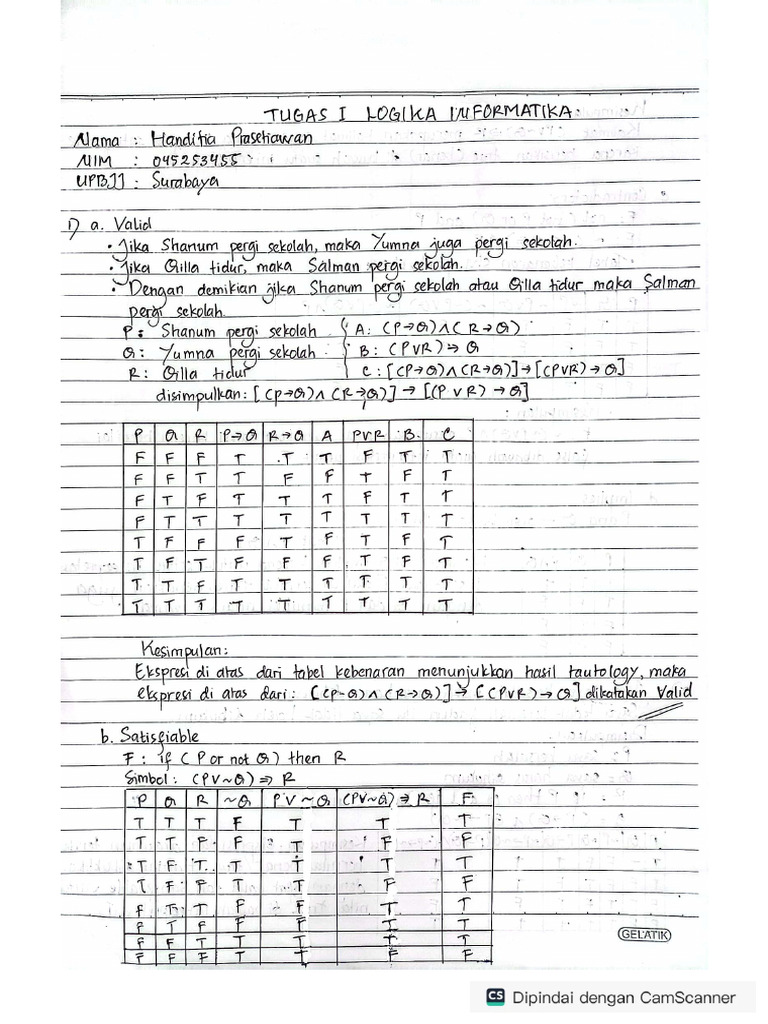 TUGAS I LOGIKA INFORMATIKA.
Nama : Handitia Prasetiawan
NIM : 045253455
UPBJJ : Surabaya
1) a. Valid
• Jika Shanum pergi sekolah, maka Yumna juga pergi sekolah.
• Jika Qilla tidur, maka Salman pergi sekolah.
• Dengan demikian jika Shanum pergi sekolah atau Qilla tidur maka Salman
pergi sekolah.
P : Shanum pergi sekolah { A : (P→Q)∧(R→Q)
Q : Yumna pergi sekolah { B : (P∨R)⇒Q
R : Qilla tidur { C : [(P→Q)∧(R→Q)]→[(P∨R)→Q]
disimpulkan : [(P→Q)∧(R→Q)]→[(P∨R)→Q]
P Q R P→Q R→Q A P∨R B C
F F F T T T F T T
F F T T F F T F T
F T F T T T F T T
F T T T T T T T T
T F F F T F T F T
T F T F F F T F T
T T F T T T T T T
T T T T T T T T T
Kesimpulan :
Ekspresi di atas dari tabel kebenaran menunjukkan hasil tautology, maka
ekspresi di atas dari : [(P-Q)∧(R→Q)]→[(P∨R)→Q] dikatakan Valid
b. Satisfiable
F : if (P or not Q) then R
Simbol : (P∨~Q)⇒R
P Q R ~Q P∨~Q (P∨~Q)⇒R F
T T T F T T T
T T F F T F F
T F T T T T T
T F F T T F F
F T T F F T T
F T F F F T T
F F T T T T T
F F F T T F F
GELATIK
CS Dipindai dengan CamScanner